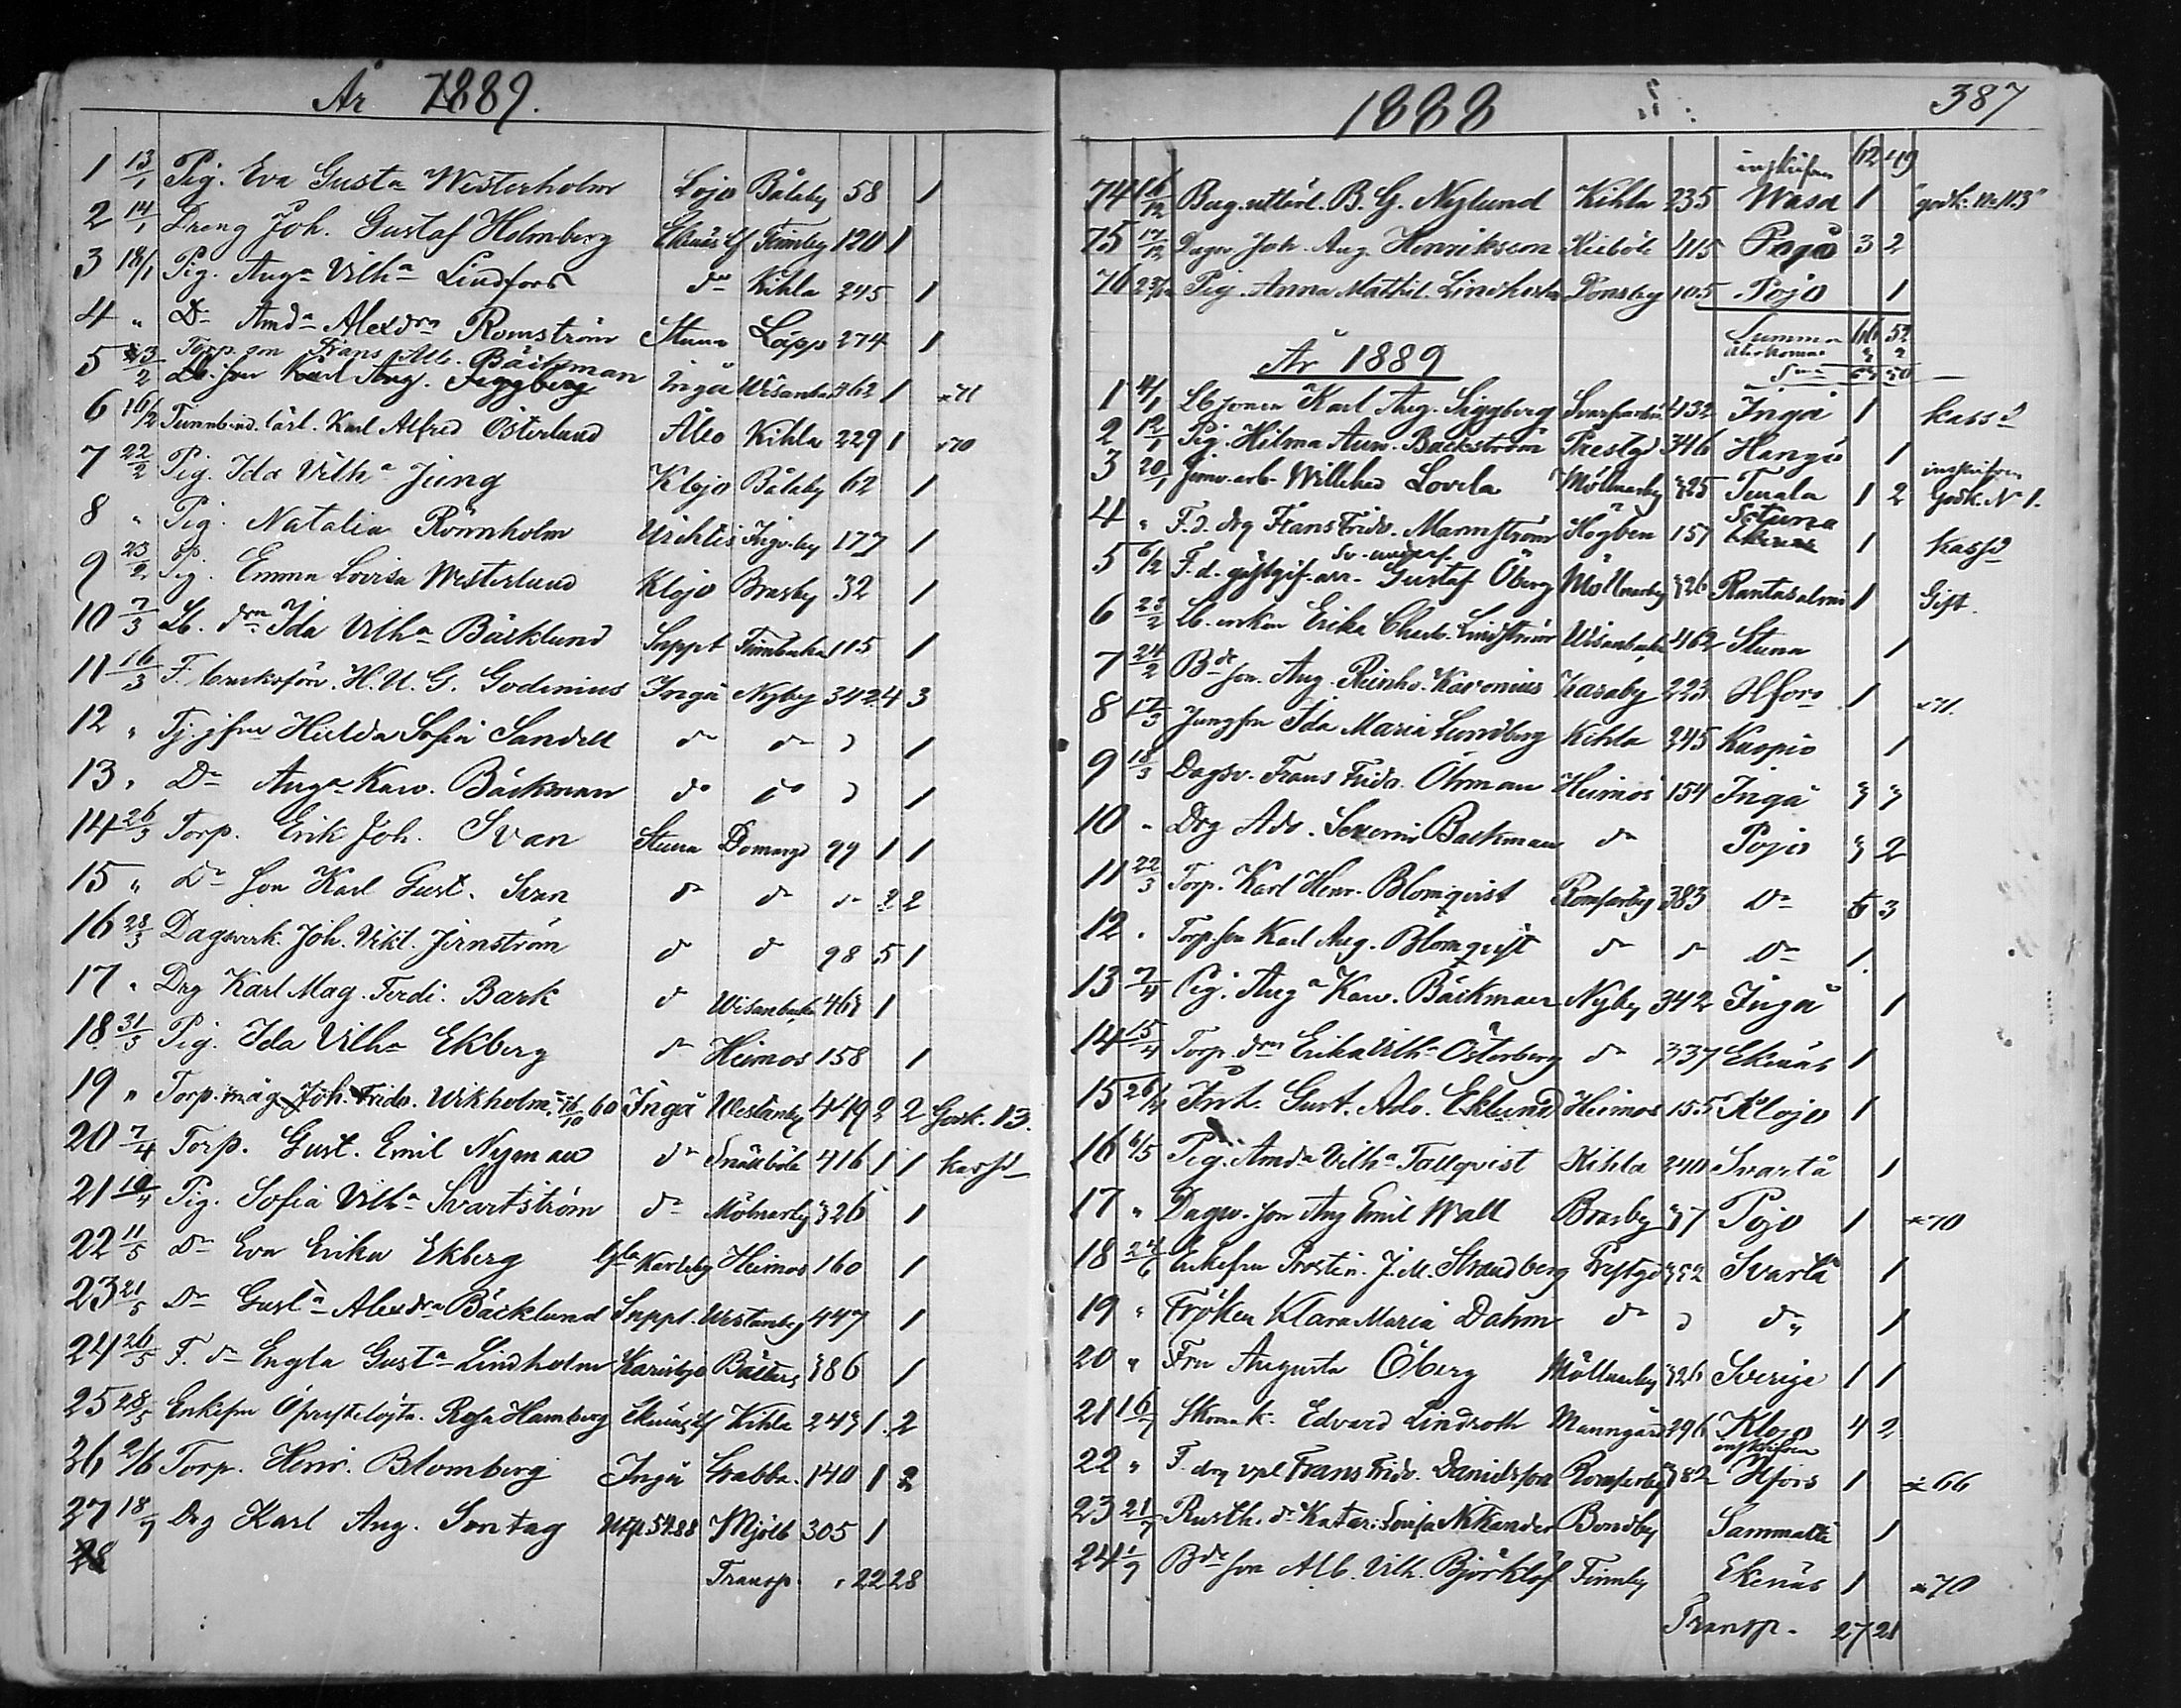 År 1889.
1 13/1 Pig. Eva Gusta Westerholm Lojo Bålaby 58 1
2 14/1 Dreng Joh. Gustaf Holmberg Eknäs lf Finnby 120 1
3 18/1 Pig. Auga Vilha Lindfors do Kihla 245 1
4 " Do Amda Alexdra Romström Stuna Läpp 274 1
5 Torp. son Frans Alb. Bäckman
3/2 Lb. son Karl Aug. Siggberg Ingå Wisanbacka 462 1 *71
6 16/2 Tunnbind. lärl. Karl Alfred Österlund Åbo Kihla 229 1 *70
7 22/2 Pig. Ida Vilha Jung Klojo Bålaby 62 1
8 " Pig. Natalia Rönnholm Wichtis Ingv.by 177 1
9 23/2 Pig. Emma Lovisa Westerlund Klojo Brasby 32 1
10 7/3 Lb. drn Ida Vilha Bäcklund Sappt Finnbacka 115 1
11 16/3 F. bruksförv. H. U. G. Godenius Ingå Nyby 342 4 3
12 " Tj. jfru Hilda Sofia Sandell do do d 1
13 " Do Auga Karo. Bäckman do do d 1
14 26/3 Torp. Erik Joh. Svan Stuna Domargd 99 1 1
15 " Do son Karl Gust. Svan do do do 2 2
16 28/3 Dagsverk. Joh. Vikt. Jernström do do 98 5 1
17 " Drg Karl Mag. Ferdi. Bark do Wisanbacka 463 1
18 31/3 Pig. Ida Vilha Ekberg do Heimos 158 1
19 " Torp. måg Joh. Frids. Wikholm 16/10 60 Ingå Westanby 449 2 2 Godk. 13.
20 7/4 Torp. Gust. Emil Nyman do Snällböle 416 1 1 kassd
21 10/4 Pig. Sofia Vilha Svartström do Mölnarby 326 1
22 11/5 Do Eva Erika Ekberg Gla Karleby Heimos 160 1
23 21/5 Do Gusta Alexdra Bäcklund Sappt. Westanby 447 1
24 26/5 F. do Engla Gusta Lindholm Karislojo Bätters 386 1
25 28/5 Enkefru Öfverstelöjtn. Rosa Hamberg Ekenäs lf Kihla 243 1 2
26 2/6 Torp. Henr. Blomberg Ingå Grabba. 140 1 2
27 18/7 Drg Karl Aug. Sontag Utfl. 54.88 Mjölb 305 1
28
Transp. 22 28
1888 387
inskrifven 62 49
74 16/12 B. G. Nylund Kihla 235 Wasa 1 "godk. N 113"
75 17/12 Dagsv. Joh. Aug. Henriksson Kiböle 415 Ingå 3 2
76 27/12 Pig. Anna Mathil. Lindholm Dönsby 105 Pojo 1
Summa 66 52
Återkomne 2 2
Sma 64 50
År 1889
1 4/1 Lb sonen Karl Aug. Siggberg Svarfvarböle 432 Ingå 1 kassd
2 12/1 Pig. Hilma Aur. Backström Prestgd 346 Hangö 1
inskrifven
3 20/1 Jernv. arb. Willehad Lovela Möllnarby 325 Tenala 1 2 Godk. N 1.
4 " F. d. drg Frans Frids. Malmström Högben 157 S:tuna 1 kassd
5 6/2 F. d. gästgif. arr. Gustaf Öberg Möllnarby 326 Rantasalmi 1 Gift.
6 23/2 Lb. enkan Erika Charl. Lindström Wisanbacka 462 Stuna 1
7 24/2 Bde son. Aug. Reinho. Karonius Karaby 223 Hfors 1 *71.
8 17/3 Jungfru Ida Maria Lundberg Kihla 245 Kuopio 1
9 18/3 Dagsv. Frans Frids. Öhrman Heimos 154 Ingå 3 3
10 " Drg Ado. Severin Backman do Pojo 3 2
11 22/3 Torp. Karl Henr. Blomqvist Romsarby 383 Do 5 3
12 " Torp. son Karl Aug. Blomqvist do do Do 1
13 7/4 Pig. Auga Karo. Bäckman Nyby 342 Ingå 1
14 15/4 Torp. drn Erika Vilha Österberg do 337 Ekenäs 1
15 26/4 Inh. Gust. Ado. Eklund Heimos 155 Klojo 1
16 6/5 Pig. Amda Vilha Tallqvist Kihla 240 Svartå 1
17 " Dagsv. son Aug Emil Wall Brasby 37 Pojo 1 *70
18 24/6 Enkefru Prostin. J. M. Strandberg Prestgd 352 Svartå 1
19 " Fröken Klara Maria Dahm do d do 1
20 " Fru Augusta Öberg Möllnarby 326 Sverige 1 1
21 16/7 Skomak. Edvard Lindroth Manngård 296 Klojo 4 2
inskrifven
22 " F. drg vpl Frans Frids. Danielsson Romsarby 382 Hfors 1 * 66
23 21/7 Rusth. dr Katar. Lovisa Nikander Bondby Sammatti 1
24 1/9 Bde son Alb. Vilh. Björklöf Finnby Ekenäs 1 *70
Transp. 27 21